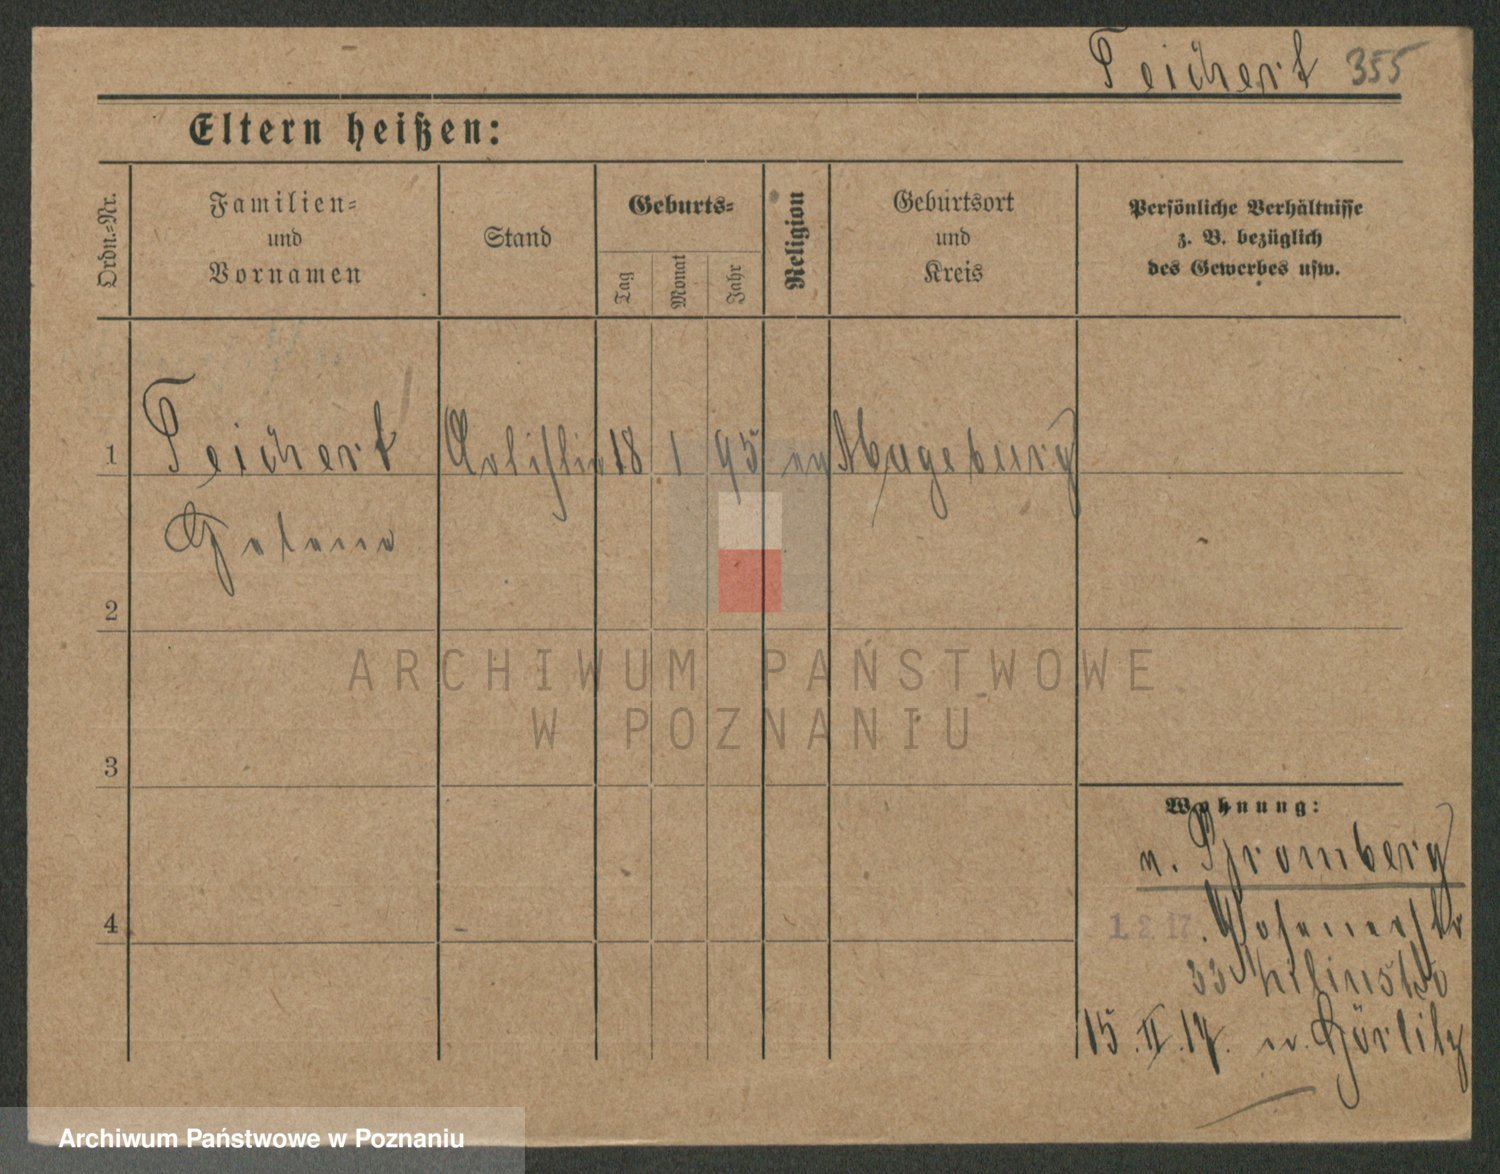 Teichert 355
Eltern heißen:
Ordn.-Nr.
Familien-
und
Vornamen
Stand
Geburts-
Tag
Monat
Jahr
Religion
Geburtsort
und
Kreis
Persönliche Verhältnisse
z. B. bezüglich
des Gewerbes usw.
1 Teichert 18 1 95 ev Mageburg
2
3
4
Wohnung:
n. Bromberg
1. 2 17. Posenerstr
33
15. II. 17. Görlitz
ARCHIWUM PAŃSTWOWE
W POZNANIU
Archiwum Państwowe w Poznaniu